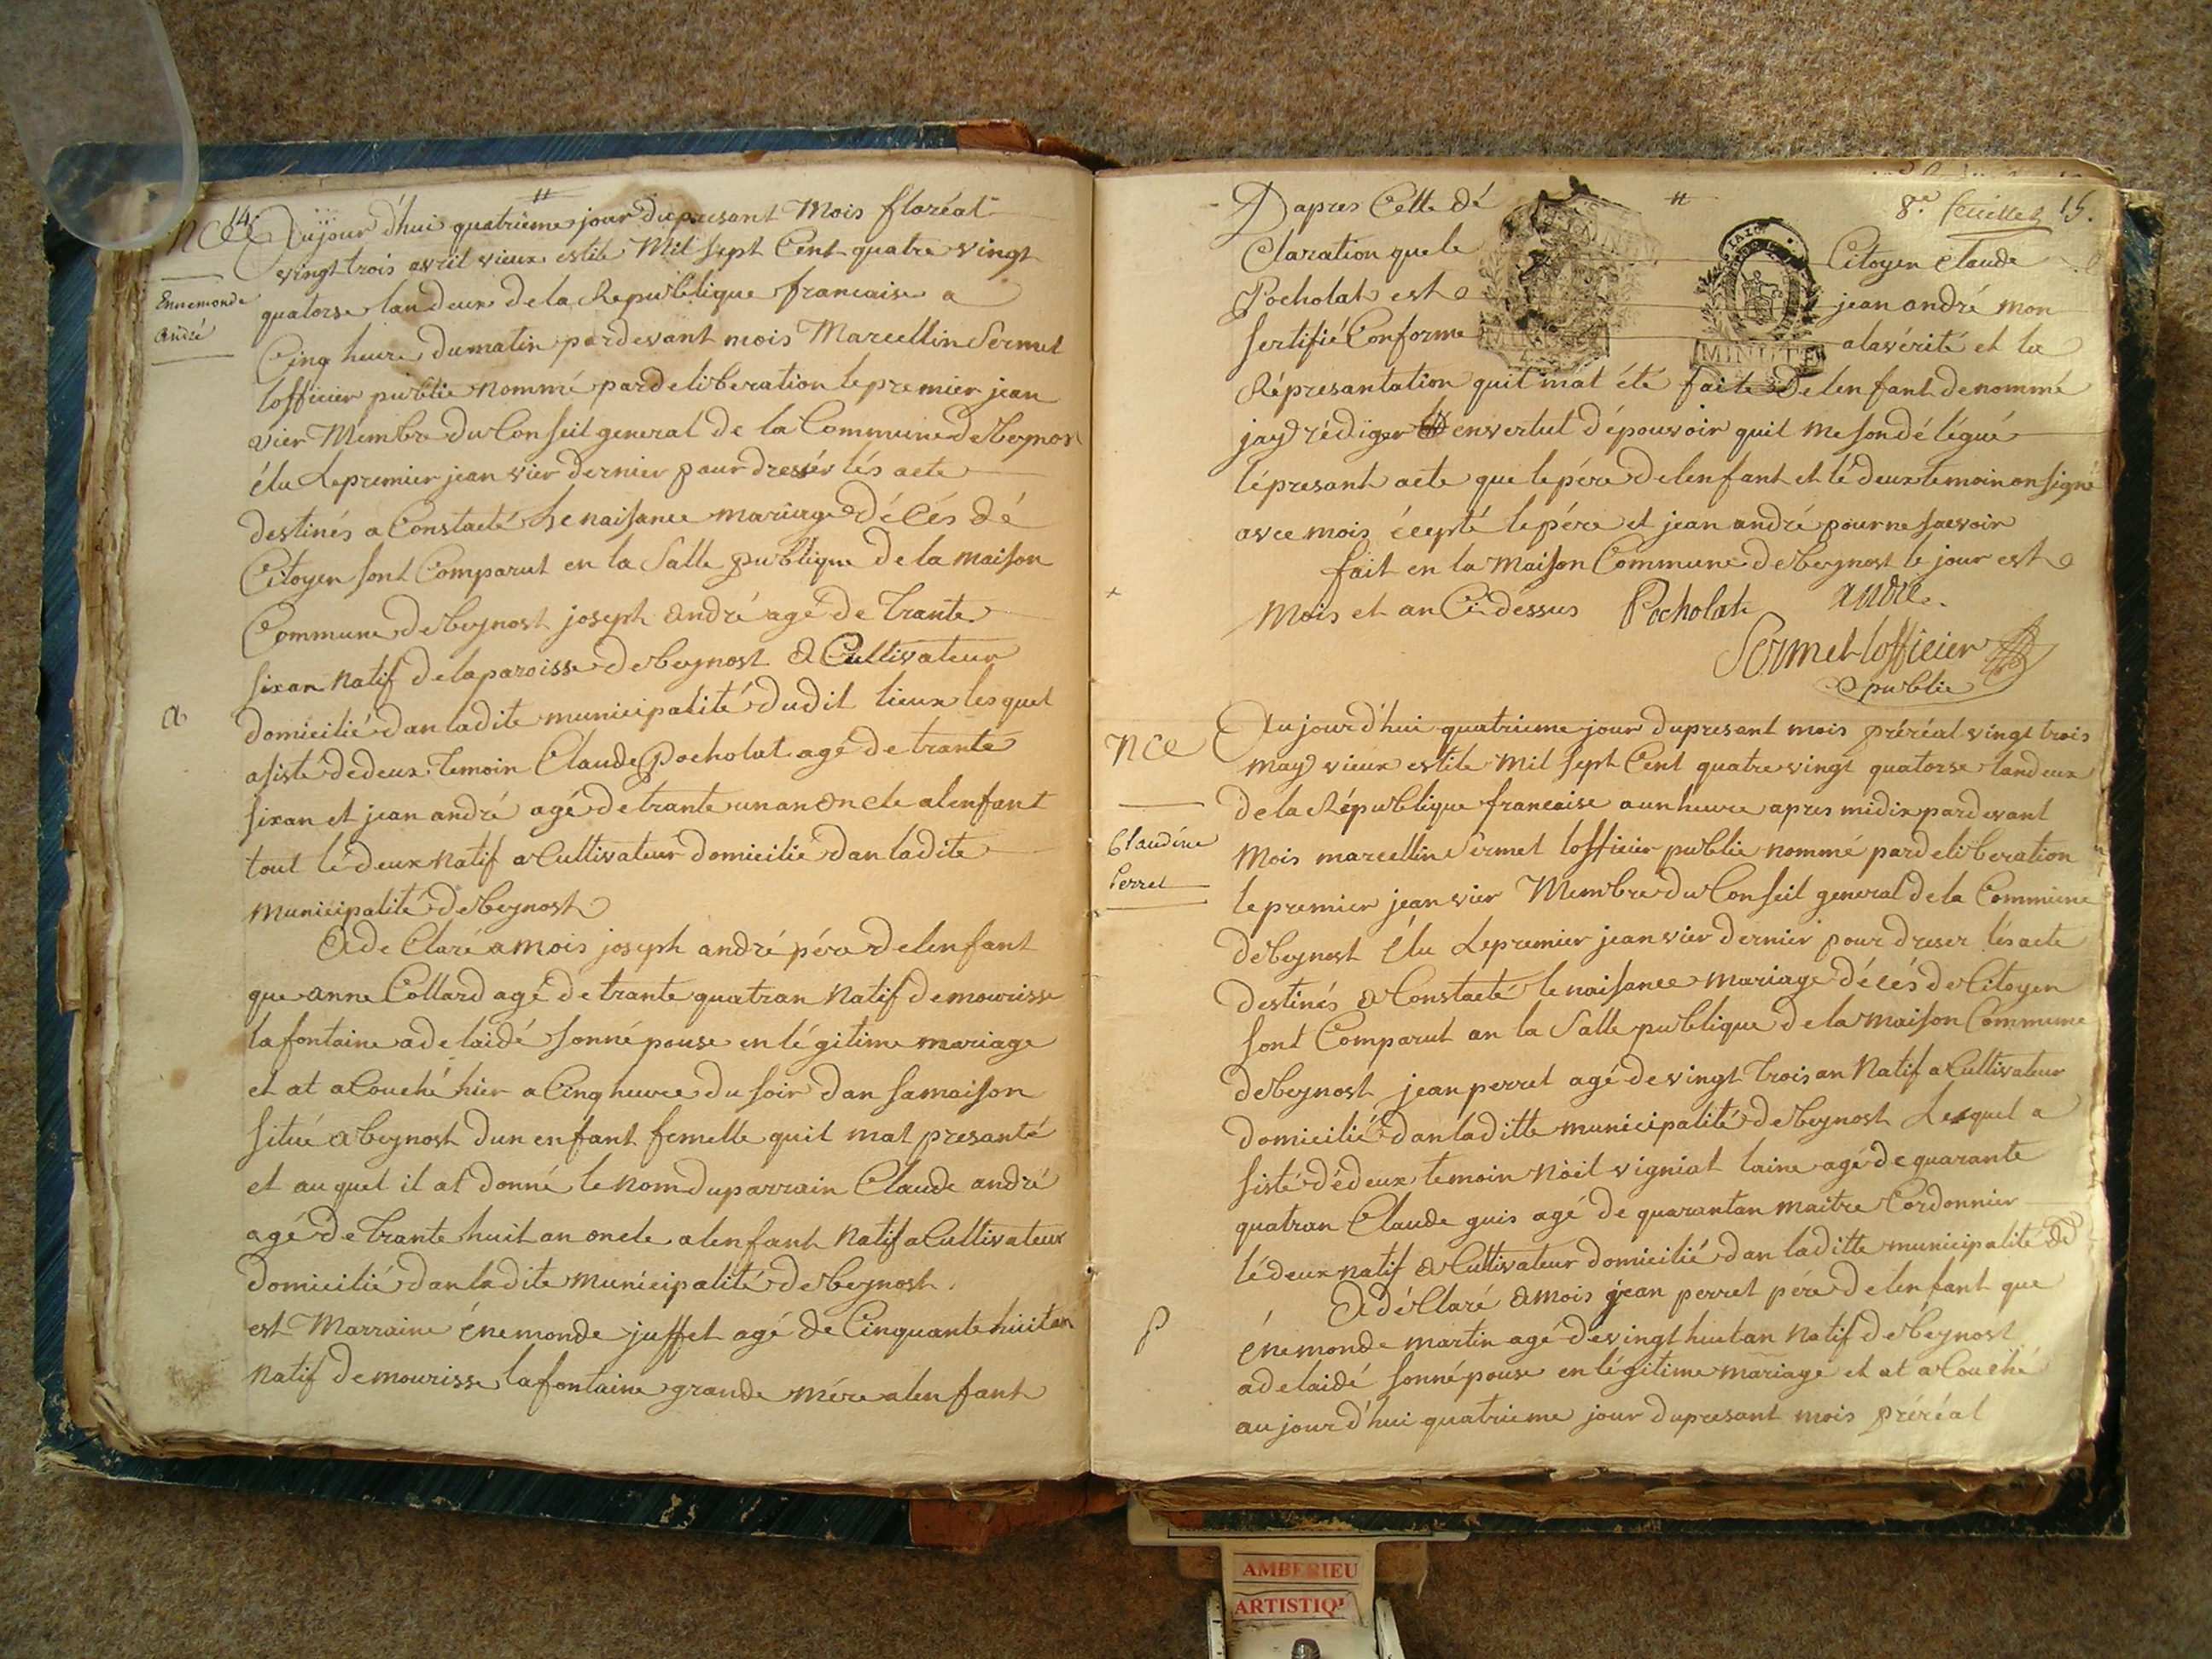 14.
NCe
Ennemonde
André
a
Aujour d'hui quatrieme jour du presant Mois floréal
vingt trois avril vieux estile Mil sept Cent quatre vingt
quatorse lan deux de la Republique francaise a
Cinq heure du matin pardevant mois Marcellin Sermet
lofficier public nommé par deliberation le premier jean
vier Membre du Conseil general de la Commune de beynost
élu Le premier jean vier dernier pour dresér lés acte
destinés a Constacté le naisance mariage décés dé
Citoyen sont Comparut en la Salle publique de la maison
Commune de beynost joseph andré agé de trante
sixan Natif de la paroisse de beynost & Cultivateur
domicilié dan ladite municipalité dudit lieux lesquel
asisté dedeux temoin Claude Pocholat agé de trante
sixan et jean andré agé de trante un an oncle alenfant
tout lé deux Natif a Cultivateur domicilié dan ladite
Municipalité de beynost
A de Claré a mois joseph andré pére delenfant
que anne Collard agé de trante quatran Natif de mourisse
lafontaine adelaidé sonnépouse en légitime mariage
et at a Couché hier a Cinq heure du soir dan samaison
situé a beynost dun enfant femelle quil mat presanté
et au quel il at donné le nom duparrain Claude andré
agé de trante huit an oncle alenfant Natif a Cultivateur
domicilié dan ladite Municipalité de beynost.
est Marraine énemonde juffet agé de Cinquante huitan
Natif de mourisse lafontaine grande mére alenfant
8.e feuillet 15.
Dapres Cette dé
Claration que le Citoyen Claude
Pocholat est jean andré mon
sertifié Conforme alavérité et la
MINUTE
Représantation quil mat été faite De lenfant denommé
jay rédiger envertut dépouvoir quil me son délégué
lépresant acte que lepére delenfant et lé deux temoin on signé
avec mois écepté lepére et jean andré pour ne savoir
fait en la Maison Commune de beynost le jour est
Mois et an Ci déssus Pocholat andre.
Sermet lofficier
public
NCe
Claudine
Perret
P
Au jourd'hui quatrieme jour dupresent mois préréal vingt trois
may vieux estile Mil sept Cent quatre vingt quatorse landeux
de la République francaise a un heure apres midix pardevant
Mois marcellin Sermet lofficier public nommé pardeliberation
lepremier jeanvier Membre du Conseil general de la Commune
de beynost Élu Lepremier jeanvier dernier pour dreser lésacte
destinés a Constacté le naisance mariage décés de Citoyen
sont Comparut an la Salle publique de la maison Commune
de beynost jean perret agé de vingt trois an Natif a Cultivateur
domicilié dan laditte municipalité de beynost Lesquel a
sisté dédeux temoin Nöil vigniat laine agé de quarante
quatran Claude guis agé de quarantan maitre Cordonnier
lédeux natif a Cultivateur domicilié dan laditte municipalité de
A dé Claré a mois jean perret pére de lenfant que
énemonde martin agé de vingt huitan Natif de beynost
adelaidé sonnépouse en légitime mariage et at a Couché
au jourd'hui quatrieme jour dupresant mois préréal
AMBERIEU
ARTISTIQ